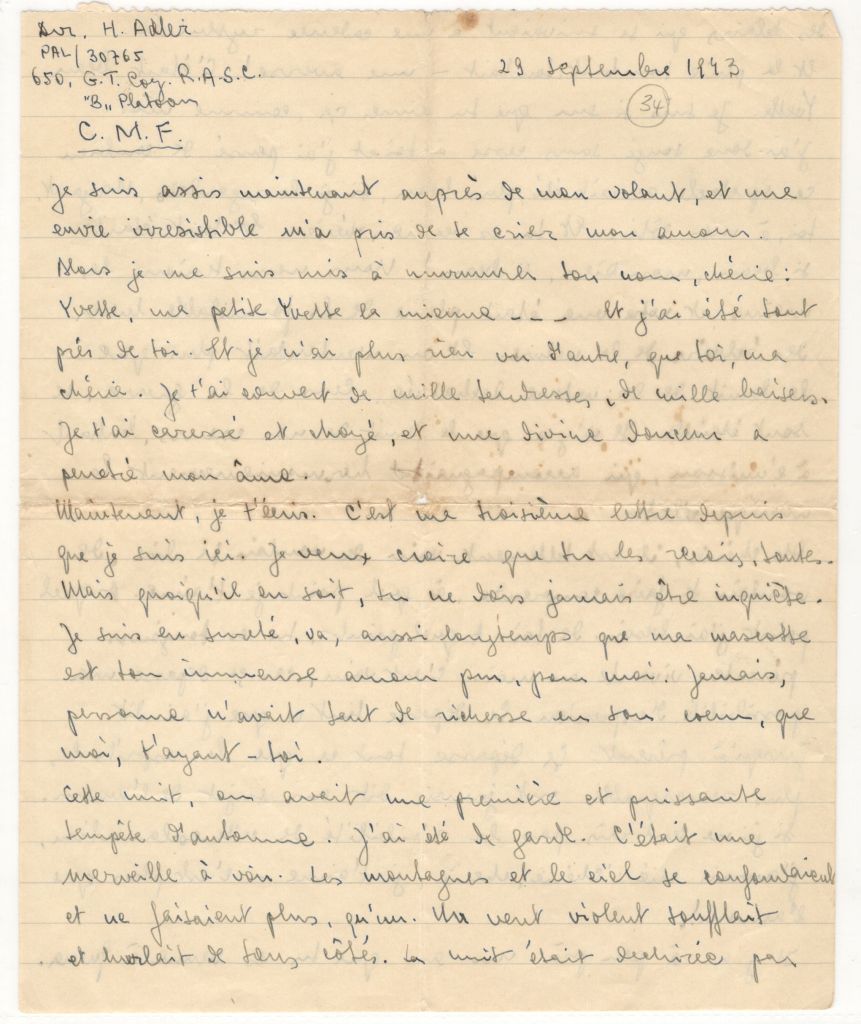 Dvr. H. Adler
PAL/30765
650, G.T. Coy. R.A.S.C.
"B" Platoon
C. M. F.
29 septembre 1943
34
Je suis assis maintenant auprès de mon volant, et une
envie irresistible m'a pris de te crier mon amour.
Alors je me suis mis à murmurer ton nom, chérie:
Yvette, ma petite Yvette la mienne --- Et j'ai été tout
près de toi. Et je n'ai plus rien vu d'autre, que toi, ma
chérie. Je t'ai couvert de mille tendresses, de mille baisers.
Je t'ai caressé et choyé, et une divine douceur a
penetré mon âme.
Maintenant, je t'écris. C'est ma troisième lettre depuis
que je suis ici. Je veux croire que tu les reçois, toutes.
Mais quoiqu'il en soit, tu ne dois jamais être inquiète.
Je suis en sureté, va, aussi longtemps que ma mascotte
est ton immense amour pur, pour moi. Jamais,
personne n'avait tant de richesse en son coeur, que
moi, t'ayant-toi.
Cette nuit, on avait une première et puissante
tempête d'automne. J'ai été de garde. C'était une
merveille à voir. Les montagnes et le ciel se confondaient
et ne faisaient plus, qu'un. Un vent violent soufflait
et hurlait de tous côtés. La nuit était dechirée par